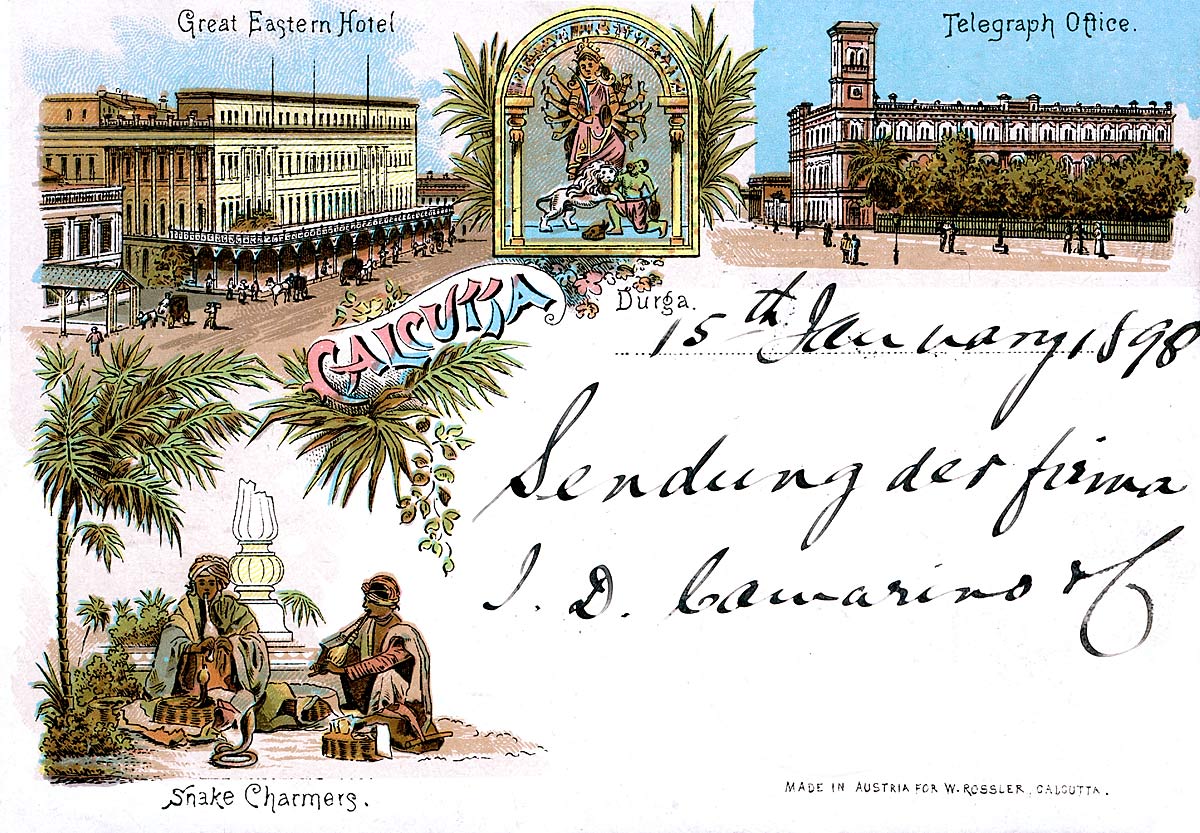 Great Eastern Hotel
Telegraph Office.
Durga.
CALCUTTA
15th January 1898
Sendung der firma
J. D. Camarinos & C
Snake Charmers.
MADE IN AUSTRIA FOR W. ROSSLER, CALCUTTA.